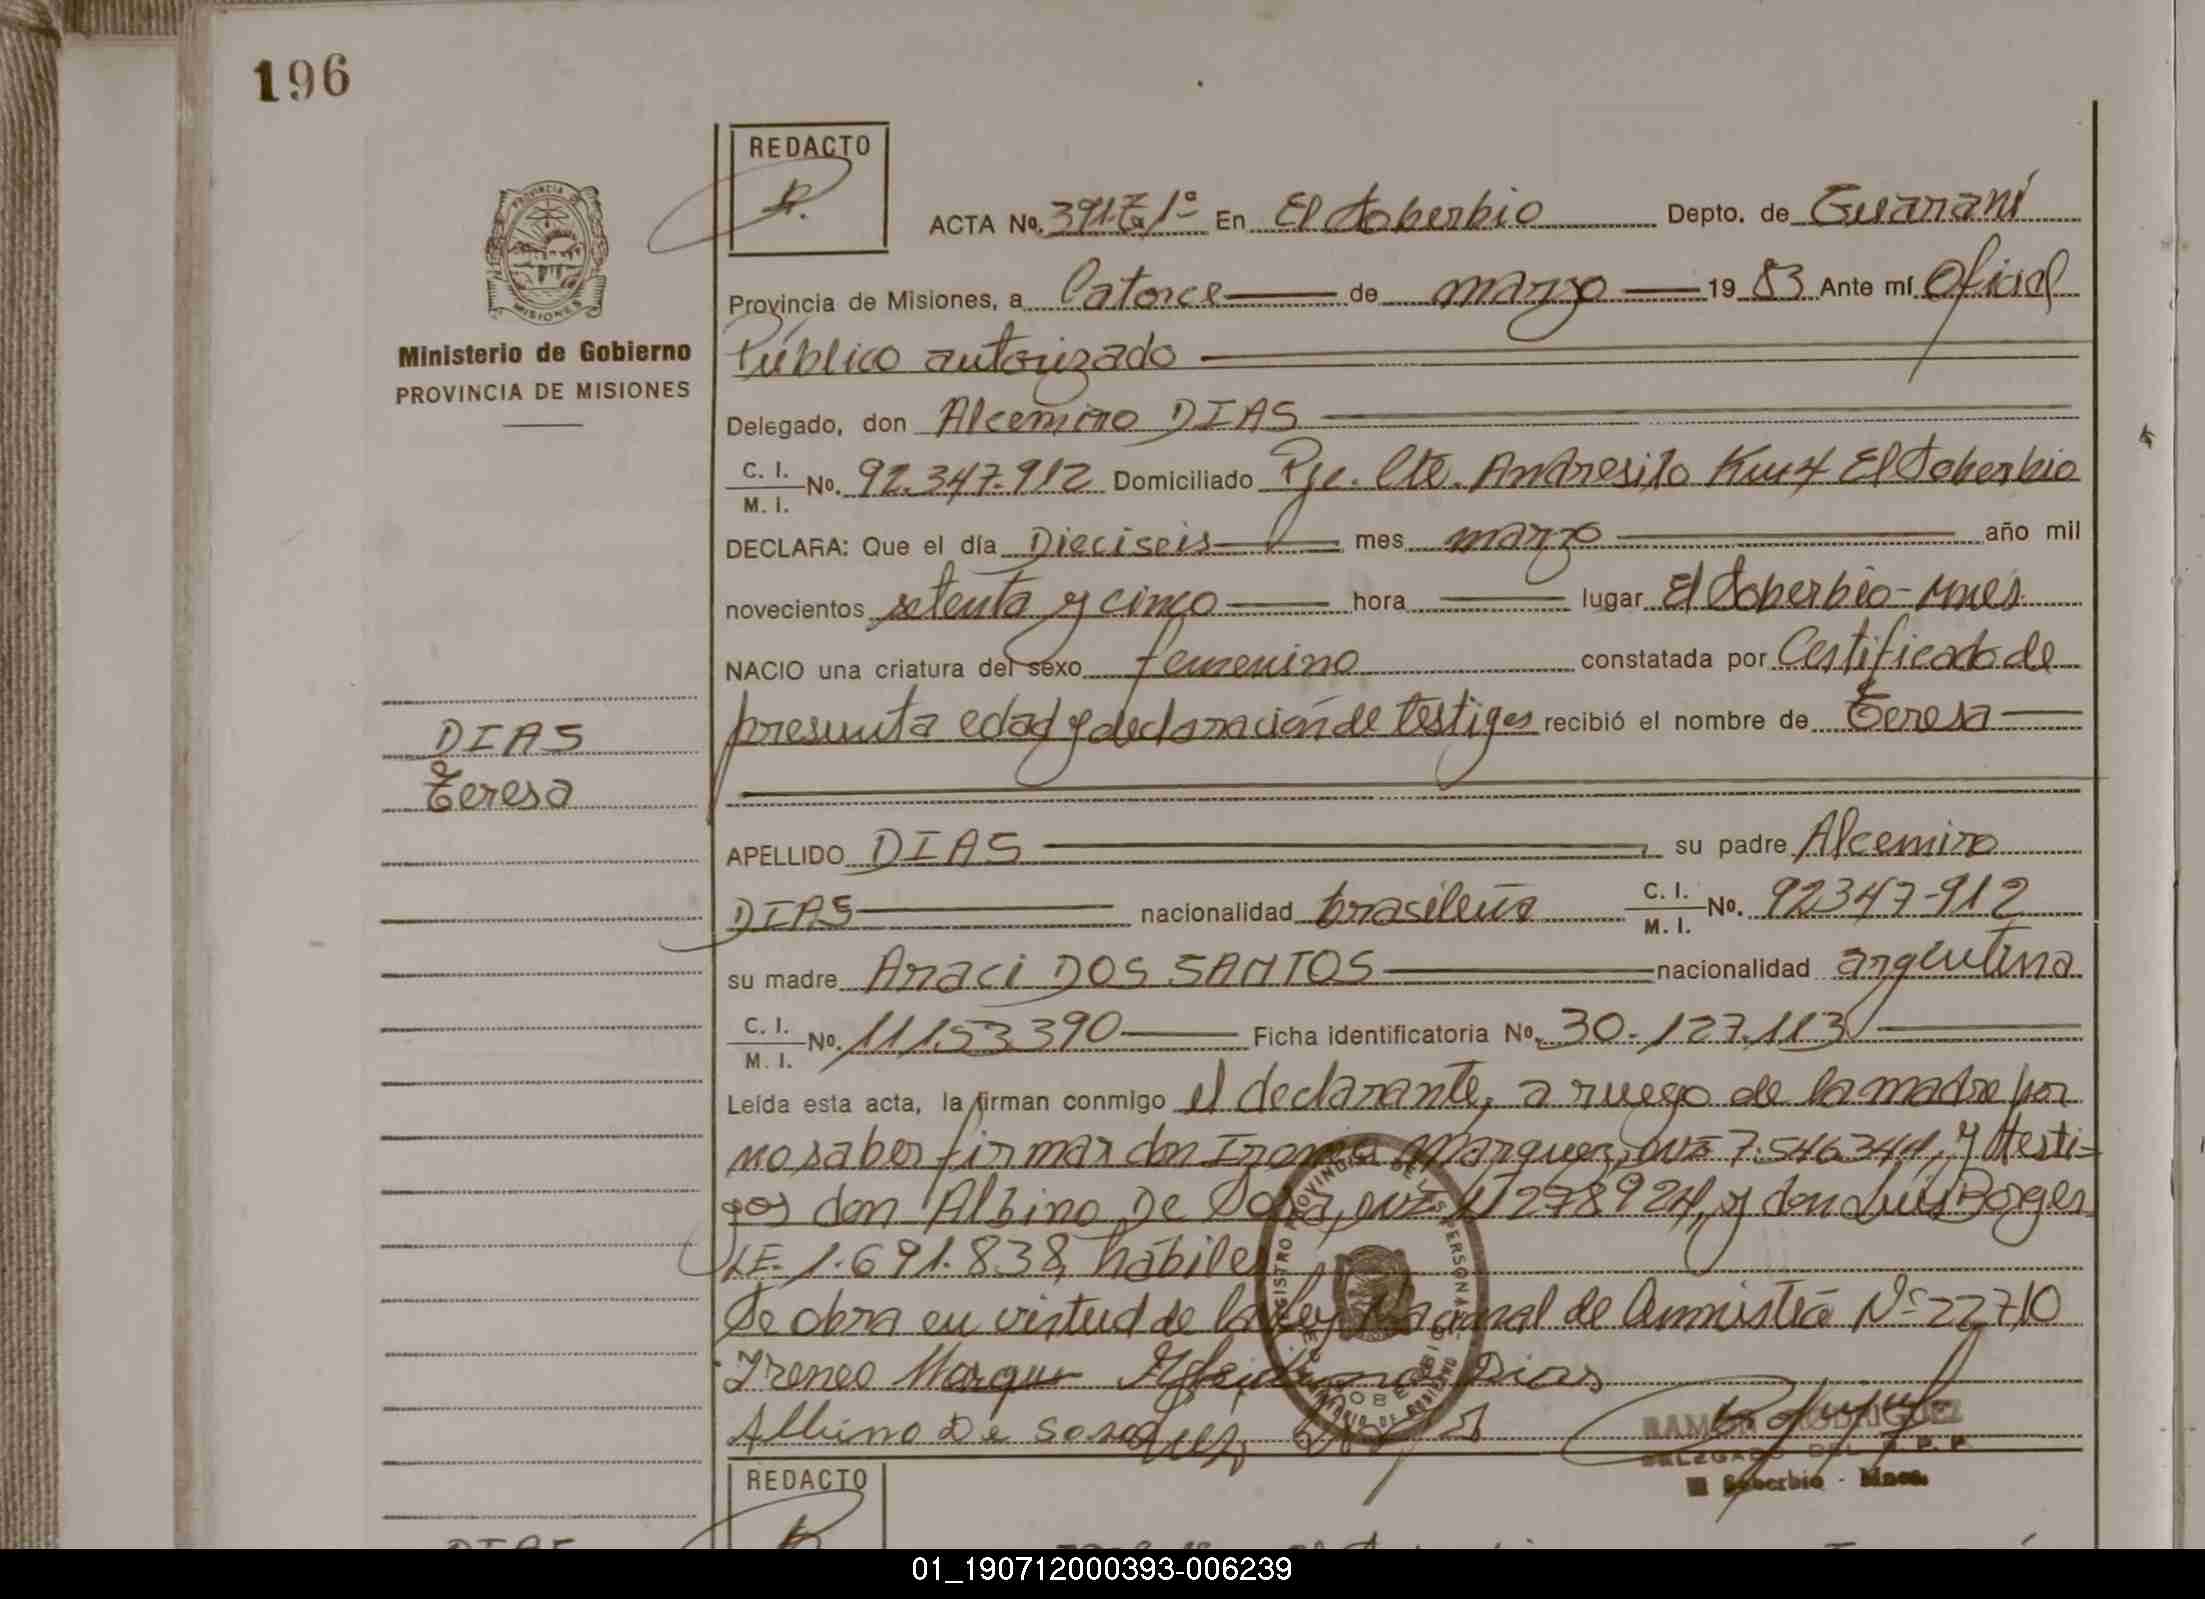 196
REDACTO
ACTA Nº. 391.T/1º En El Soberbio Depto. de Guaraní
PROVINCIA DE MISIONES
Provincia de Misiones, a Catorce de marzo 1983 Ante mí Oficial
Ministerio de Gobierno
PROVINCIA DE MISIONES
Público autorizado
Delegado, don Alcemiro DIAS
C. I. M. I. Nº. 92.347.912 Domiciliado Pje. Cte. Andresito Km 4 El Soberbio
DECLARA: Que el día Dieciseis mes marzo año mil
novecientos setenta y cinco hora lugar El Soberbio - Mnes.
NACIO una criatura del sexo femenino constatada por Certificado de
presunta edad y declaración de testigos recibió el nombre de Teresa
DIAS
Teresa
APELLIDO DIAS su padre Alcemiro
DIAS nacionalidad brasileña C. I. M. I. Nº. 92347-912
su madre Araci DOS SANTOS nacionalidad argentina
C. I. M. I. Nº. 11153390 Ficha identificatoria Nº. 30-127.113
Leída esta acta, la firman conmigo el declarante, a ruego de la madre por
no saber firmar don Ireneo Marquez, 7.546.344, y testi-
gos don Albino De Sosa, 11278924, y don Luis Borges
LE. 1.691.838, hábiles
Se obra en virtud de la Ley Nacional de Amnistía Nº 22710
Ireneo Marque Dias
Albino De Sosa Luis
REGISTRO PROVINCIAL DE LAS PERSONAS
RAMON RODRIGUEZ
DELEGADO DEL R. P. P.
El Soberbio - Mnes.
REDACTO
DIAS
01_190712000393-006239